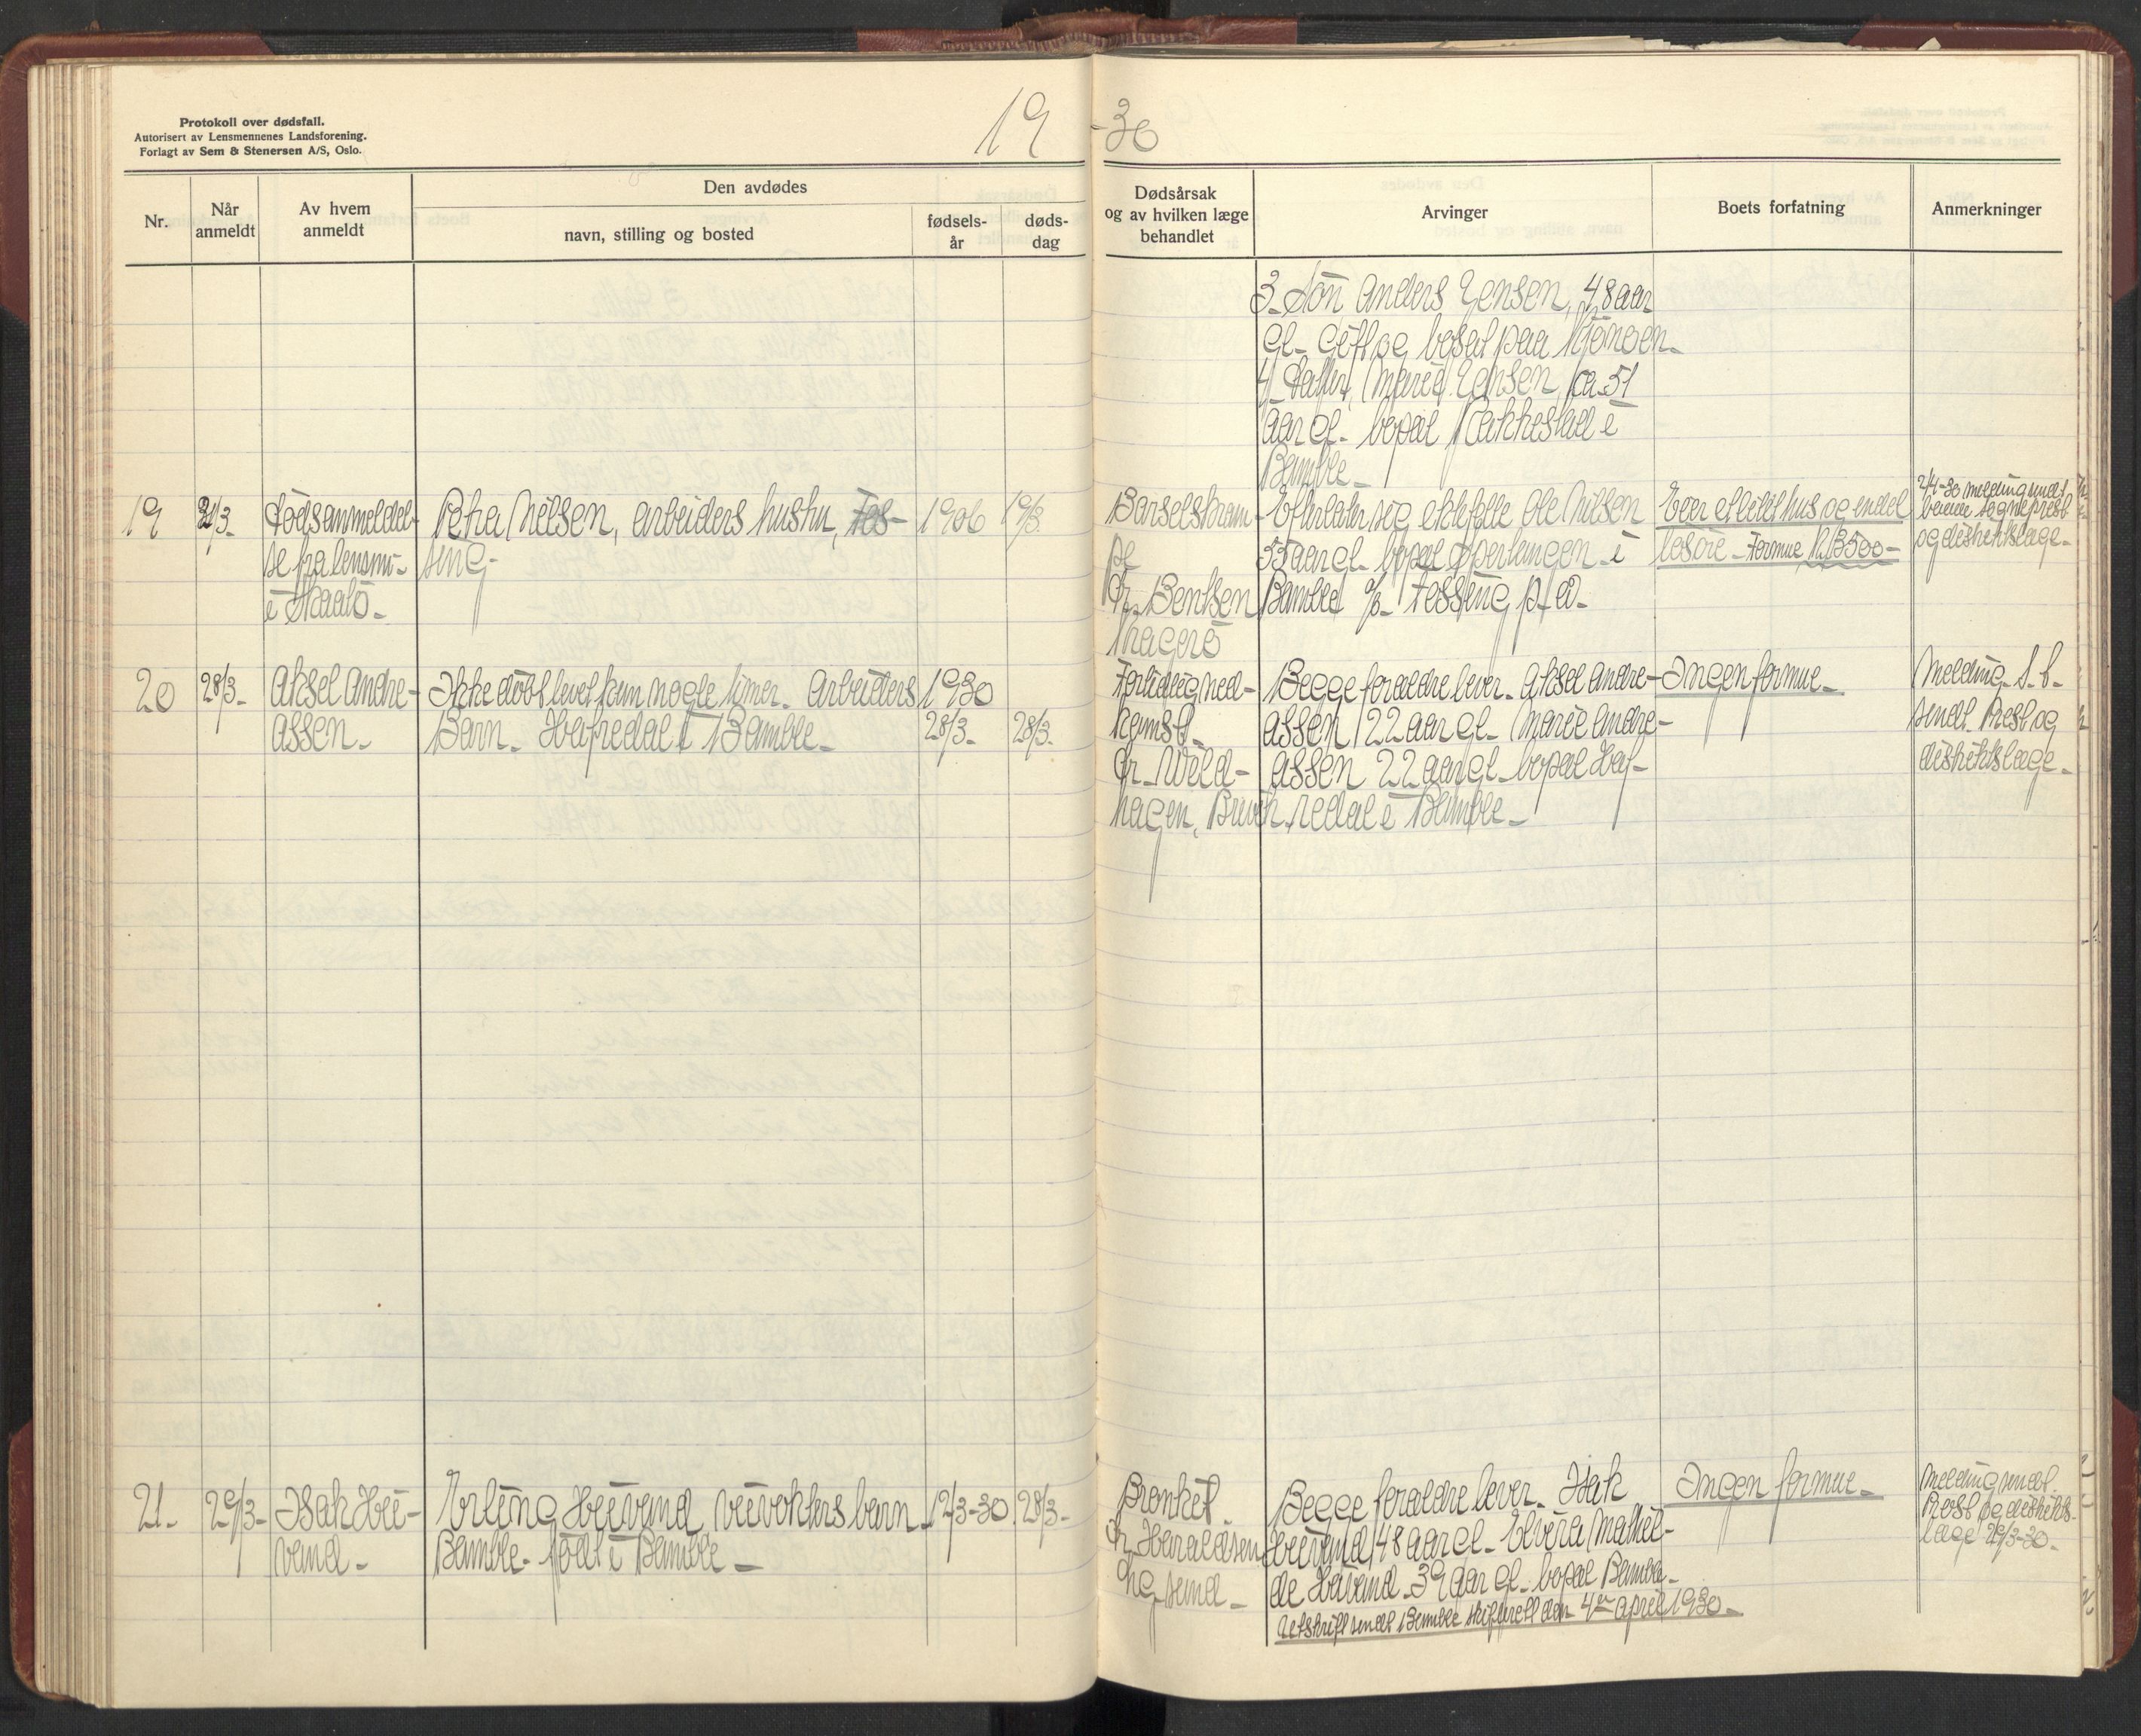 Protokoll over dødsfall.
Autorisert av Lensmennenes Landsforening.
Forlagt av Sem & Stenersen A/S, Oslo.
19 -30
Nr.
Når
anmeldt
Av hvem
anmeldt
Den avdødes
navn, stilling og bosted
fødsels-
år
døds-
dag
Dødsårsak
og av hvilken læge
behandlet
Arvinger
Boets forfatning
Anmerkninger
3. Sön Anders Jensen, 48 aar
gl. Gift og bosat paa
4. Datter, Marie Jensen, ca. 51
aar gl. bopæl Rakkestad i
Bamble.
19
31/3.
Dödsanmeldel-
se fra lensm.
i Skaatö.
Petra Nilsen, arbeiders hustru, Fos-
sing.
1906
19/3
Barselskram-
pe
Dr. Bentsen
Kragerö
Efterlater sig ektefelle Ole Nilsen
35 aar gl. bopæl i
Bamble Fossing p. d.
Eier et litet hus og endel
lösöre. Formue Kr. 3500-
2/4-30 melding sendt
sogneprest
og distriktslæge.
20
28/3.
Aksel Andre-
assen.
Ikke döbt levet kun nogle timer. Arbeiders
Barn. Hafredal i Bamble.
1930
28/3.
28/3.
Fortidlig ned-
komst.
Dr. Wild-
hagen, Brevik
Begge forældre lever. Aksel Andre-
assen 22 aar gl. Marie Andre-
assen 22 aar gl. bopæl Haf-
redal i Bamble.
Ingen formue.
Melding S. b.
sendt. Prest og
distriktslæge.
21.
29/3.
Isak Hei-
vand.
Erling Heivand, veivokters barn.
Bamble. Född i Bamble.
12/3-30
28/3.
Bronket.
Dr. Haraldsen
Begge forældre lever. Isak
Heivand 48 aar gl. Elvira Mathil-
de Heivand 39 aar gl. bopæl Bamble.
Utskrift sendt Bamble skifterett den 4de april 1930.
Ingen formue.
Melding sendt.
Prest og distrikts-
læge 29/3-30.